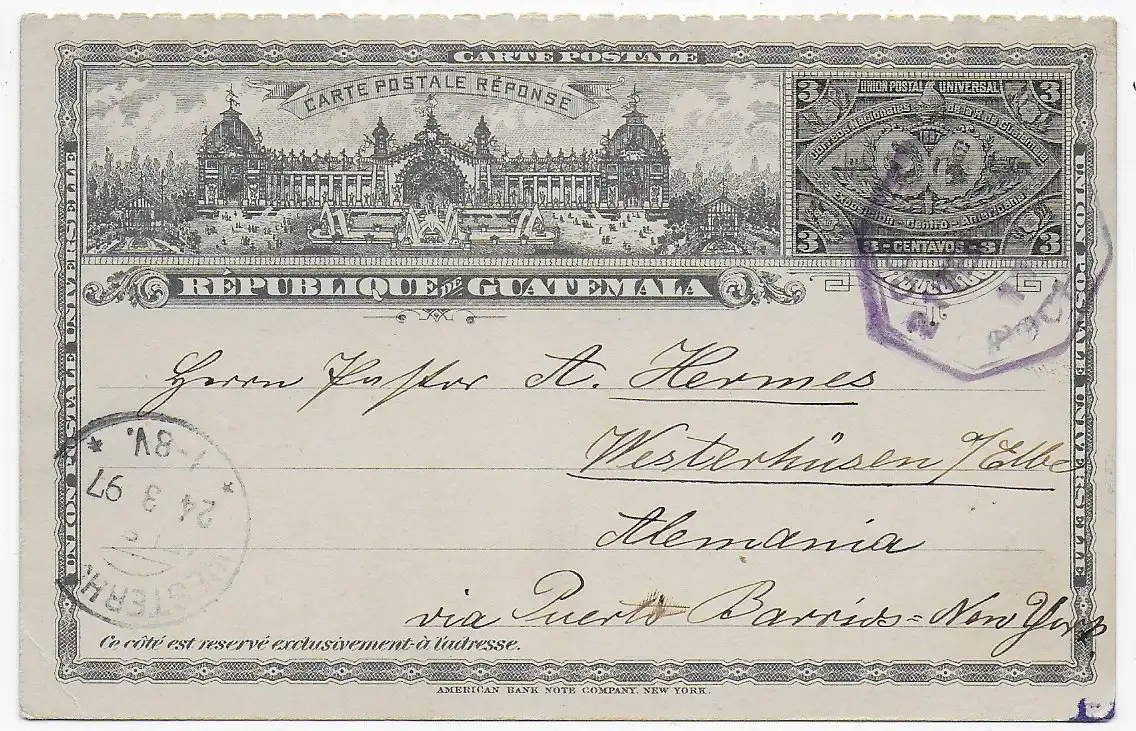 CARTE POSTALE
CARTE POSTALE RÉPONSE
UNION POSTALE UNIVERSELLE
UNION POSTALE UNIVERSELLE
3 UNION POSTAL UNIVERSAL 3
Exposición Centro-Americana
3 3-CENTAVOS-3 3
RÉPUBLIQUE DE GUATEMALA
Herrn Pastor A. Hermes
Westerhüsen a/Elbe
Alemania
via Puerto Barrios=New York
WESTERH
24 3 97
1-8V.
Ce côté est reservé exclusivement à l'adresse.
AMERICAN BANK NOTE COMPANY, NEW YORK.